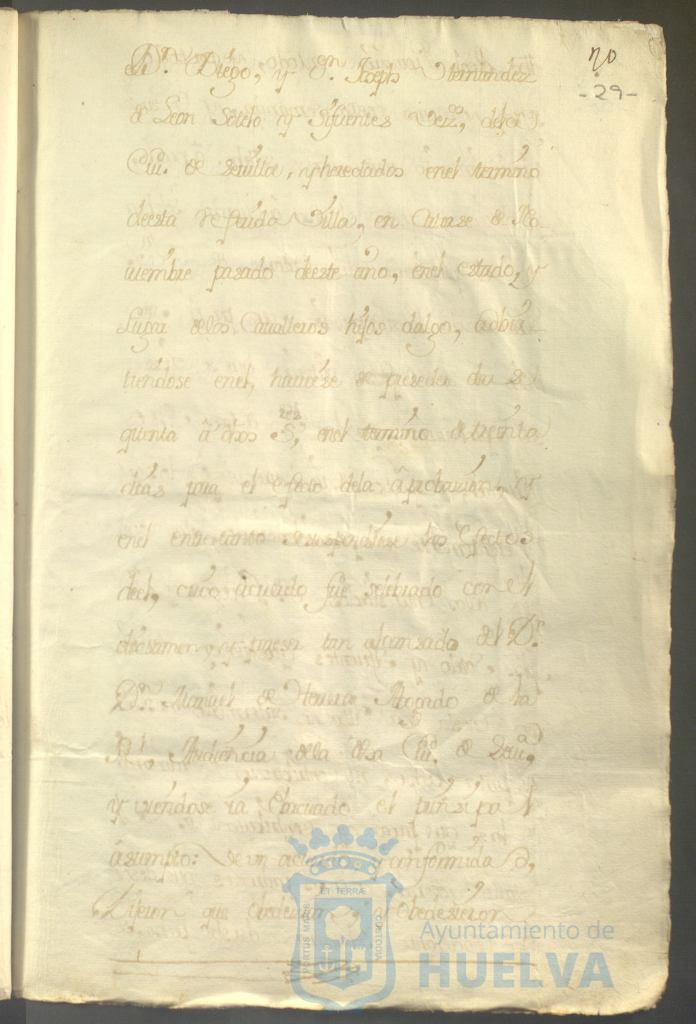 70
-29-
el Dn. Diego, y Dn. Joseph Fernandez
de Leon Sotelo y Sifuentes Vezos, dela
Ciud. de Sevilla, y heredados enel termino
deesta referida Villa, en Catorze de No
viembre pasado deeste año, enel estado, y
Lugar delos Cavalleros hijos dalgo, advir
tiendose enel, haverse de proceder dar
quenta â dhos Sres, enel termino de treinta
dias para el efecto dela Aprobazion, y
enel entretanto los Efectos
deel, cuio acuerdo fue zelebrado con el
dictamen y tan del Dr.
Dn. Manuel de Herrera Abogado de la
Rl. Audiencia dela dha Ciud. de Sevilla,
y viendose ia evacuado el
asumpto: de un acuerdo y conformidad,
Dijeron que Obedecian y Obedezieron
PORTUS MARIS
ET TERRÆ
CUSTODIA
Ayuntamiento de
HUELVA